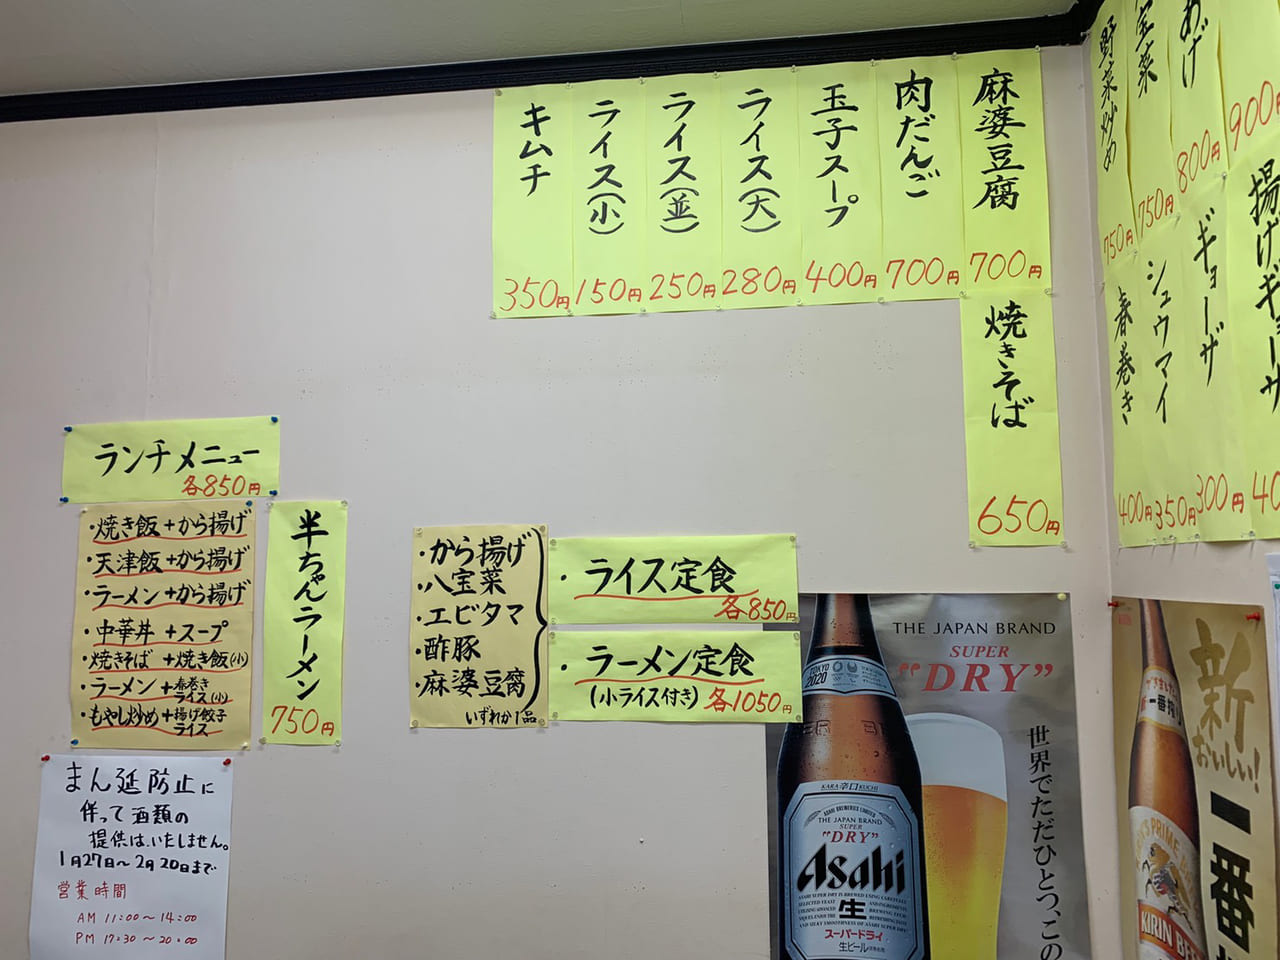 麻婆豆腐
700円
肉だんご
700円
玉子スープ
400円
ライス(大)
280円
ライス(並)
250円
ライス(小)
150円
キムチ
350円
焼きそば
650円
900円
あげ
800円
宝菜
750円
野菜炒め
750円
揚げギョーザ
40
ギョーザ
300円
シュウマイ
350円
春巻き
400円
ランチメニュー
各850円
・焼き飯+から揚げ
・天津飯+から揚げ
・ラーメン+から揚げ
・中華丼+スープ
・焼きそば+焼き飯(小)
・ラーメン+春巻き
ライス(小)
・もやし炒め+揚げ餃子
ライス
半ちゃんラーメン
750円
・から揚げ
・八宝菜
・エビタマ
・酢豚
・麻婆豆腐
いずれか1品
・ライス定食
各850円
・ラーメン定食
(小ライス付き)各1050円
まん延防止に
伴って酒類の
提供はいたしません。
1月27日〜2月20日まで
営業時間
AM 11:00〜14:00
PM 17:30〜20:00
THE JAPAN BRAND
SUPER
"DRY"
世界でただひとつ、この
TOKYO
2020
KARA 辛口 KUCHI
ASAHI BREWERIES LIMITED
THE JAPAN BRAND
SUPER
"DRY"
Asahi
生
スーパードライ
生ビール
新
おいしい!
一番
一番搾り
KIRIN BE